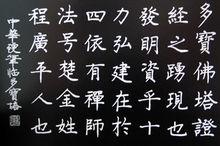 多寶佛塔證
經之踴現也
發明資乎十
力弘建在於
四依有禪師
法號楚金姓
程廣平人也
中華硬筆臨多寶塔